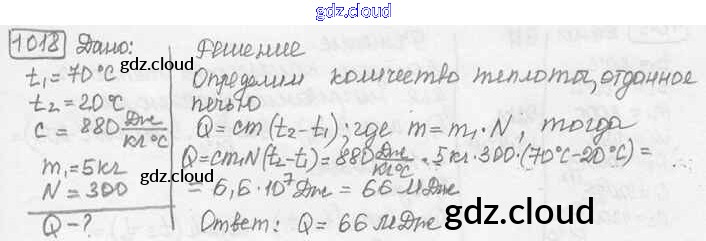 gdz.cloud
1018 Дано:
t₁=70°C
t₂=20°C
c=880 Дж/кг°C
m₁=5кг
N=300
Q-?
gdz.cloud
gdz.cloud
Решение
Определим количество теплоты, отданное
печью
Q=cm(t₂-t₁); где m=m₁·N, тогда
Q=cm₁N(t₂-t₁)=880 Дж/кг°C·5кг·300·(70°C-20°C)=
=6,6·10⁷Дж=66МДж
Ответ: Q=66МДж
gdz.cloud
gdz.cloud
gdz.cloud